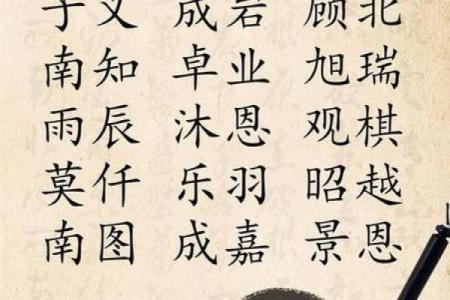 成 顾北
南知 卓业 旭瑞
雨辰 沐恩 观棋
莫仟 乐羽 昭越
南图 成嘉 景恩